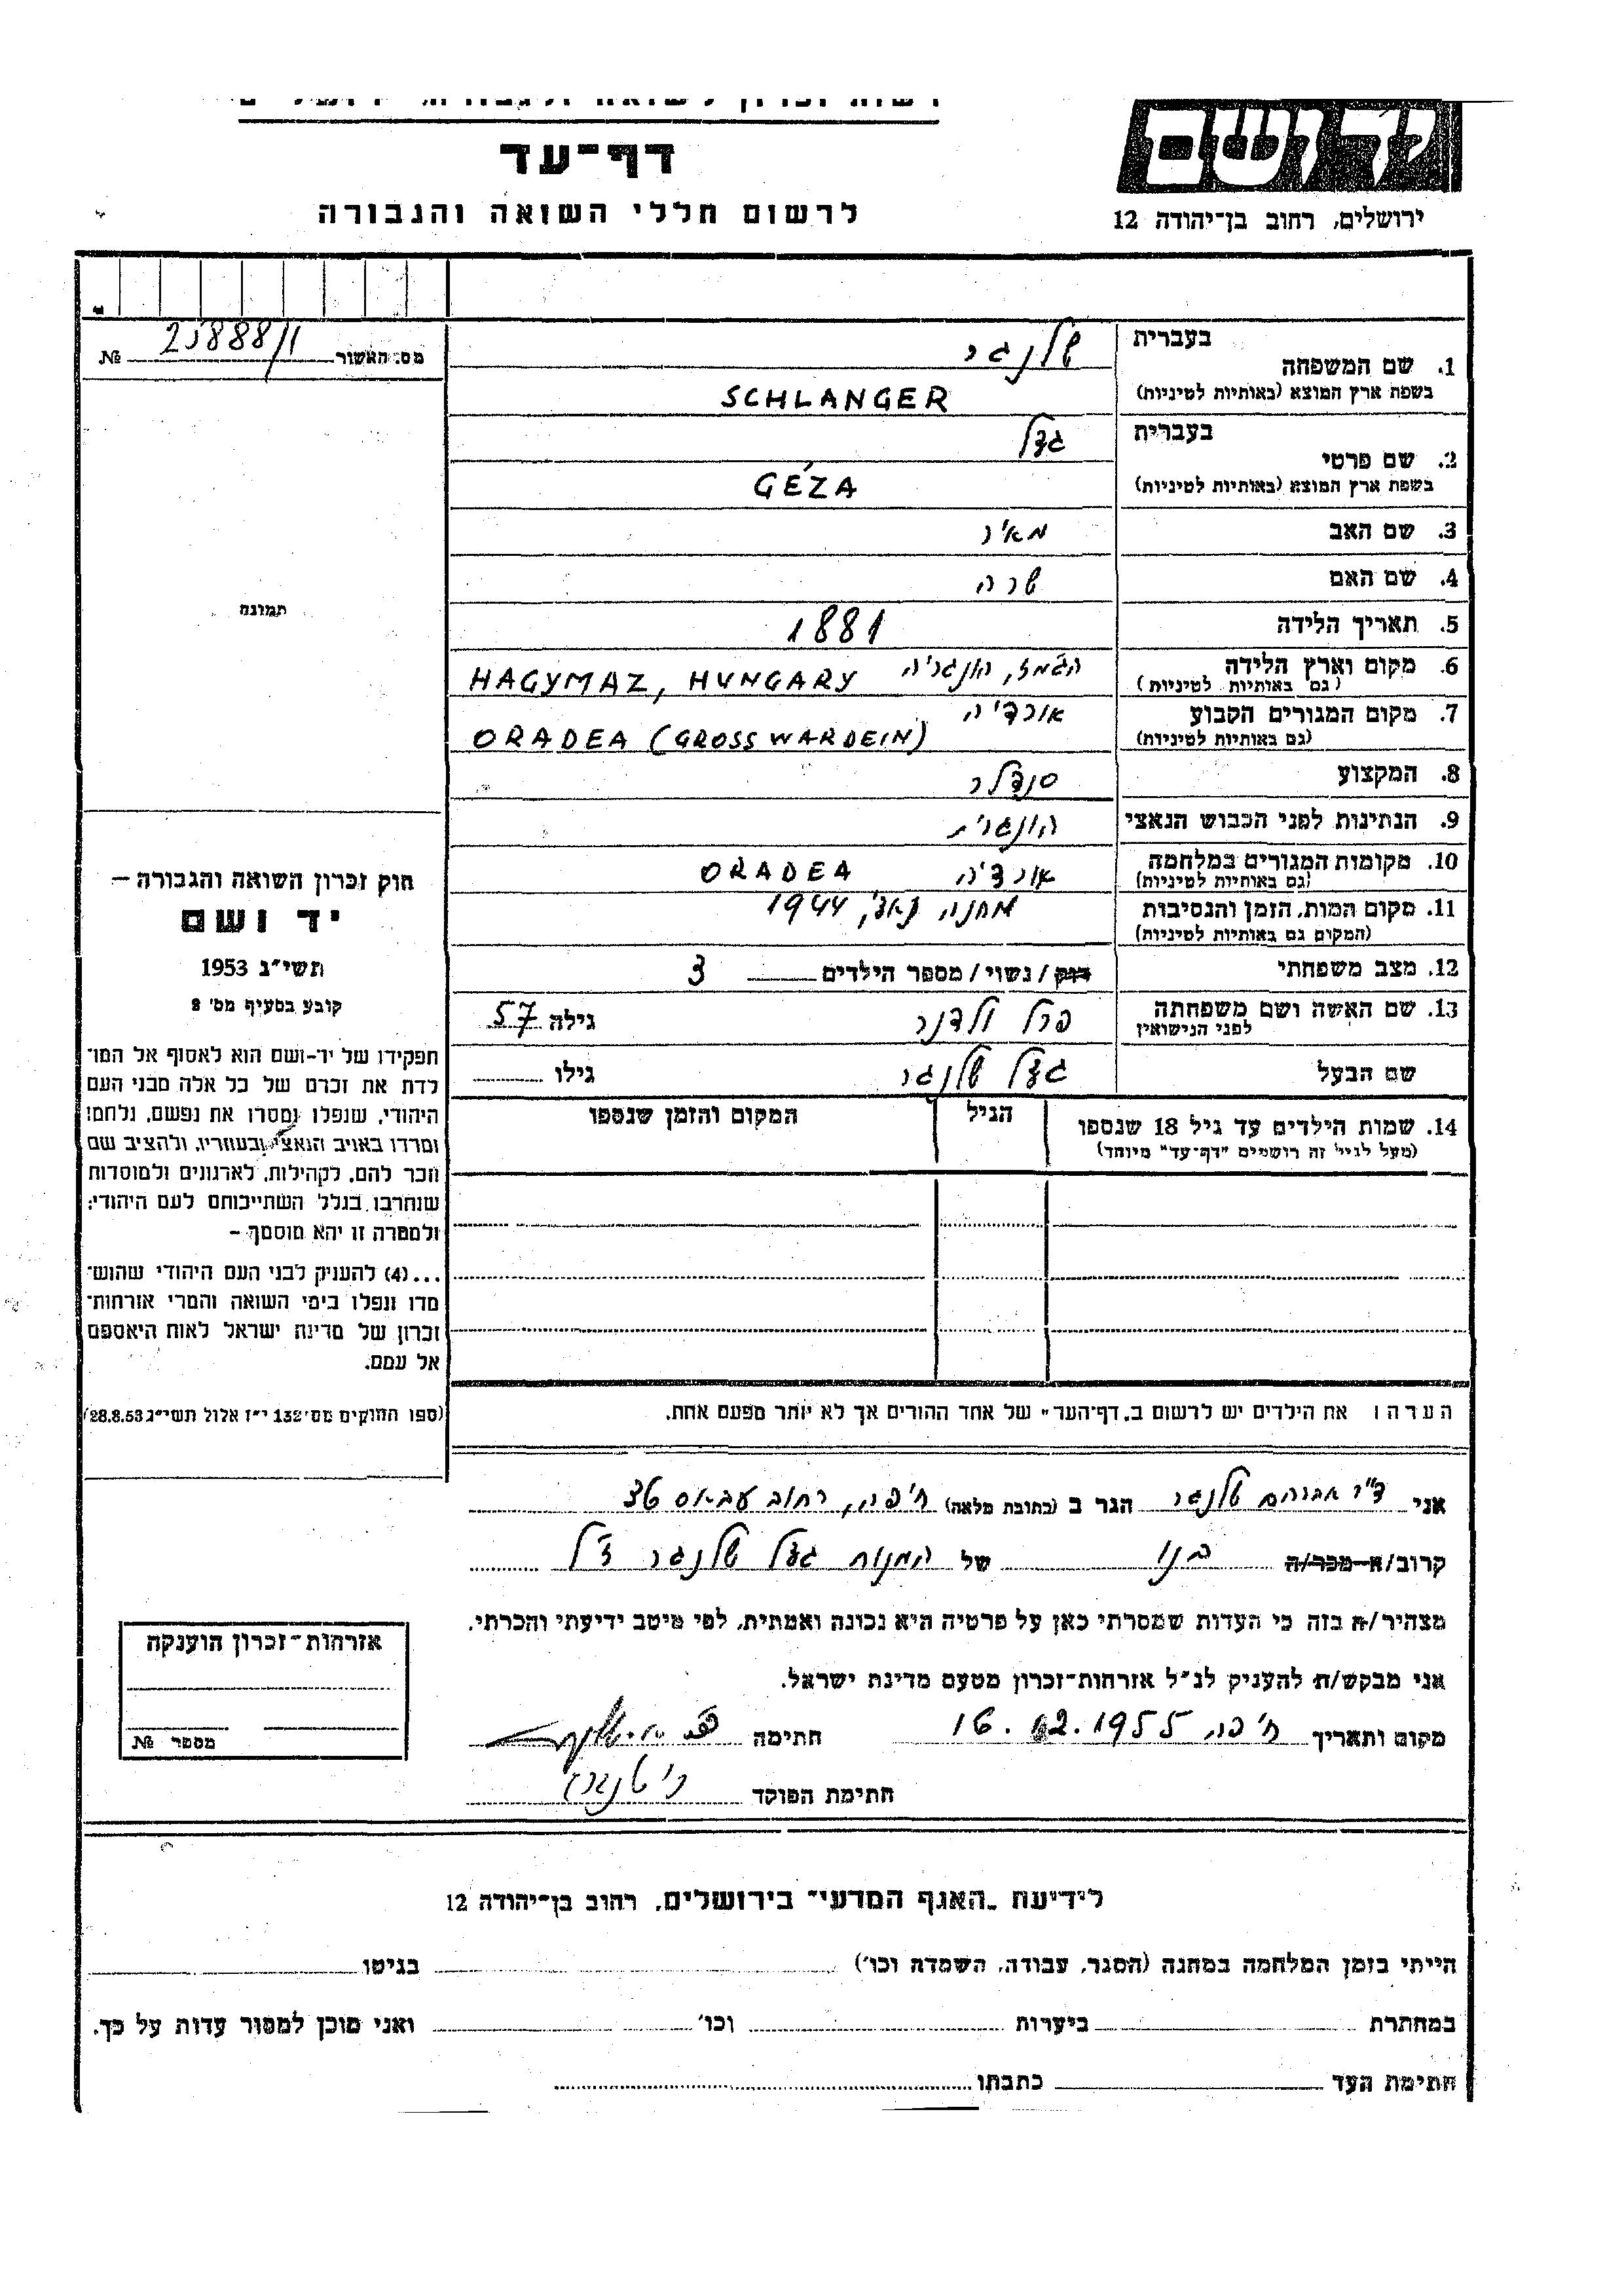 יד ושם
דף־עד
לרשום חללי השואה והגבורה
ירושלים, רחוב בן־יהודה 12
מס. האשור 25888/1 №
תמונה
1. שם המשפחה
בעברית שלנגר
בשפת ארץ המוצא (באותיות לטיניות) SCHLANGER
2. שם פרטי
בעברית גדל
בשפת ארץ המוצא (באותיות לטיניות) GÉZA
3. שם האב מאיר
4. שם האם שרה
5. תאריך הלידה 1881
6. מקום וארץ הלידה הגמז, הונגריה
(גם באותיות לטיניות) HAGYMAZ, HUNGARY
7. מקום המגורים הקבוע אורדיה
(גם באותיות לטיניות) ORADEA (GROSSWARDEIN)
8. המקצוע סנדלר
9. הנתינות לפני הכבוש הנאצי הונגרית
10. מקומות המגורים במלחמה אורדיה ORADEA
(גם באותיות לטיניות)
11. מקום המות, הזמן והנסיבות מחנה נאצי, 1944
(המקום גם באותיות לטיניות)
12. מצב משפחתי רוק / נשוי / מספר הילדים 3
13. שם האשה ושם משפחתה פרל ולדנר גילה 57
לפני הנישואין
שם הבעל גדל שלנגר גילו
14. שמות הילדים עד גיל 18 שנספו הגיל המקום והזמן שנספו
(מעל לגיל זה רושמים "דף־עד" מיוחד)
חוק זכרון השואה והגבורה –
יד ושם
תשי"ג 1953
קובע בסעיף מס' 2
תפקידו של יד-ושם הוא לאסוף אל המו־
לדת את זכרם של כל אלה מבני העם
היהודי, שנפלו ומסרו את נפשם, נלחמו
ומרדו באויב הנאצי ובעוזריו, ולהציב שם
וזכר להם, לקהילות, לארגונים ולמוסדות
שנחרבו בגלל השתייכותם לעם היהודי;
ולמטרה זו יהא מוסמך –
...(4) להעניק לבני העם היהודי שהוש־
מדו ונפלו בימי השואה והמרי אזרחות־
זכרון של מדינת ישראל לאות היאספם
אל עמם.
(ספר החוקים מס' 132 י"ז אלול תשי"ג 28.8.53)
הערה: את הילדים יש לרשום ב"דף־העד" של אחד ההורים אך לא יותר מפעם אחת.
אני ד"ר אברהם שלנגר הגר ב (כתובת מלאה) חיפה, רחוב עבאס 36
קרוב/ה מכר/ה בנו של המנוח גדל שלנגר ז"ל
מצהיר/ה בזה כי העדות שמסרתי כאן על פרטיה היא נכונה ואמתית, לפי מיטב ידיעתי והכרתי.
אני מבקש/ת להעניק לנ"ל אזרחות־זכרון מטעם מדינת ישראל.
מקום ותאריך חיפה, 16.12.1955 חתימה
חתימת הפוקד
אזרחות־זכרון הוענקה
מספר №
לידיעת "האגף המדעי" בירושלים, רחוב בן־יהודה 12
הייתי בזמן המלחמה במחנה (הסגר, עבודה, השמדה וכו') בגיטו
במחתרת ביערות וכו' ואני מוכן למסור עדות על כך.
חתימת העד כתבתו